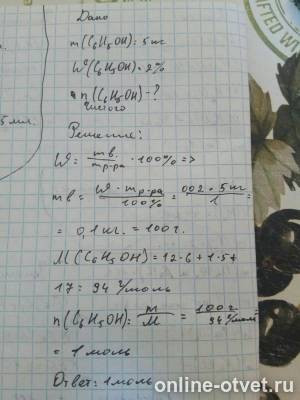 Дано
m(C₆H₅OH) = 5 кг
W(C₆H₅OH) = 2%
n(C₆H₅OH) - ?
чистого
Решение:
W = mв. / mр-ра · 100% =>
mв = W · mр-ра / 100% = 0,02 · 5 кг / 1 =
= 0,1 кг. = 100 г.
M(C₆H₅OH) = 12·6 + 1·5 +
17 = 94 г/моль
n(C₆H₅OH) = m / M = 100 г / 94 г/моль
= 1 моль
Ответ: 1 моль
5 мл.
online-otvet.ru
CRAFTED WIT